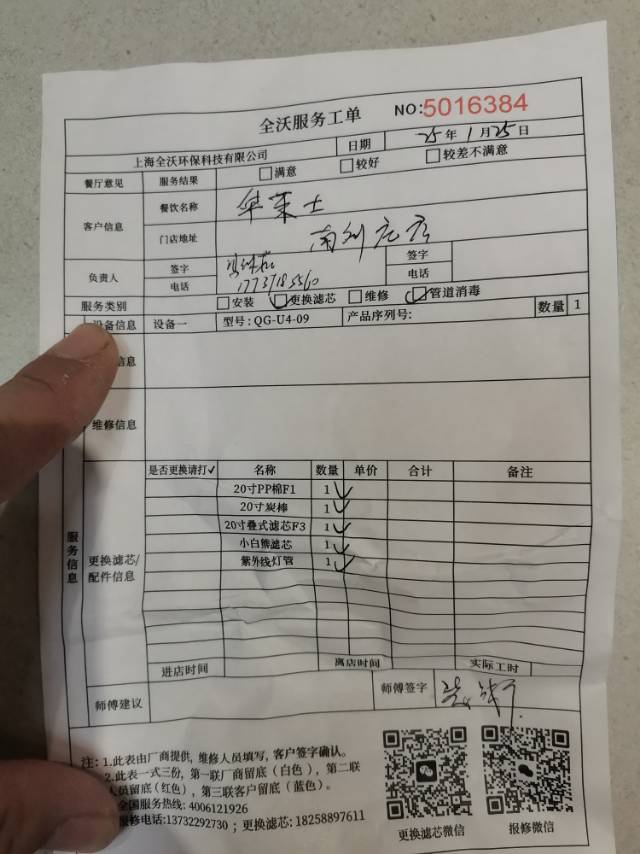 全沃服务工单 NO:5016384
上海全沃环保科技有限公司 日期 25年1月25日
餐厅意见 服务结果 满意 较好 较差不满意
客户信息 餐饮名称 华莱士
门店地址 南浏
负责人 签字 签字
电话 电话
服务类别 安装 更换滤芯 维修 管道消毒
设备信息 设备一 型号:QG-U4-09 产品序列号: 数量 1
信息
维修信息
服务信息
更换滤芯/配件信息
是否更换请打✓ 名称 数量 单价 合计 备注
20寸PP棉F1 1 ✓
20寸炭棒 1 ✓
20寸叠式滤芯F3 1 ✓
小白熊滤芯 1 ✓
紫外线灯管 1 ✓
进店时间 离店时间 实际工时
师傅建议 师傅签字
注: 1.此表由厂商提供, 维修人员填写, 客户签字确认。
2.此表一式三份, 第一联厂商留底(白色), 第二联
人员留底(红色), 第三联客户留底(蓝色)。
全国服务热线: 4006121926
报修电话:13732292730; 更换滤芯: 18258897611
更换滤芯微信 报修微信